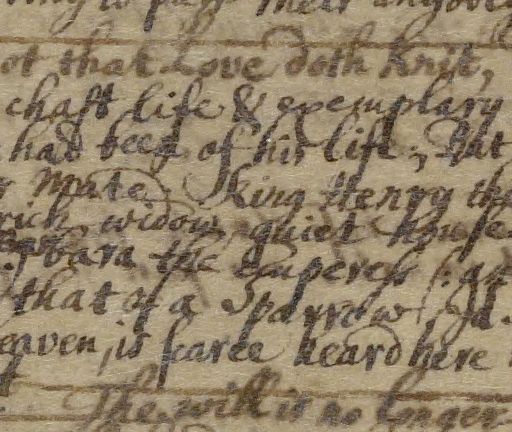 ot that Love doth knit,
chast life & exemplary
had beeg of his life; But
Mate. King Henry the
rich widow, quiet house
bara the Emperess: as
that of a Sparrow. Id.
eaven, is scarce heard here
The will is no longer